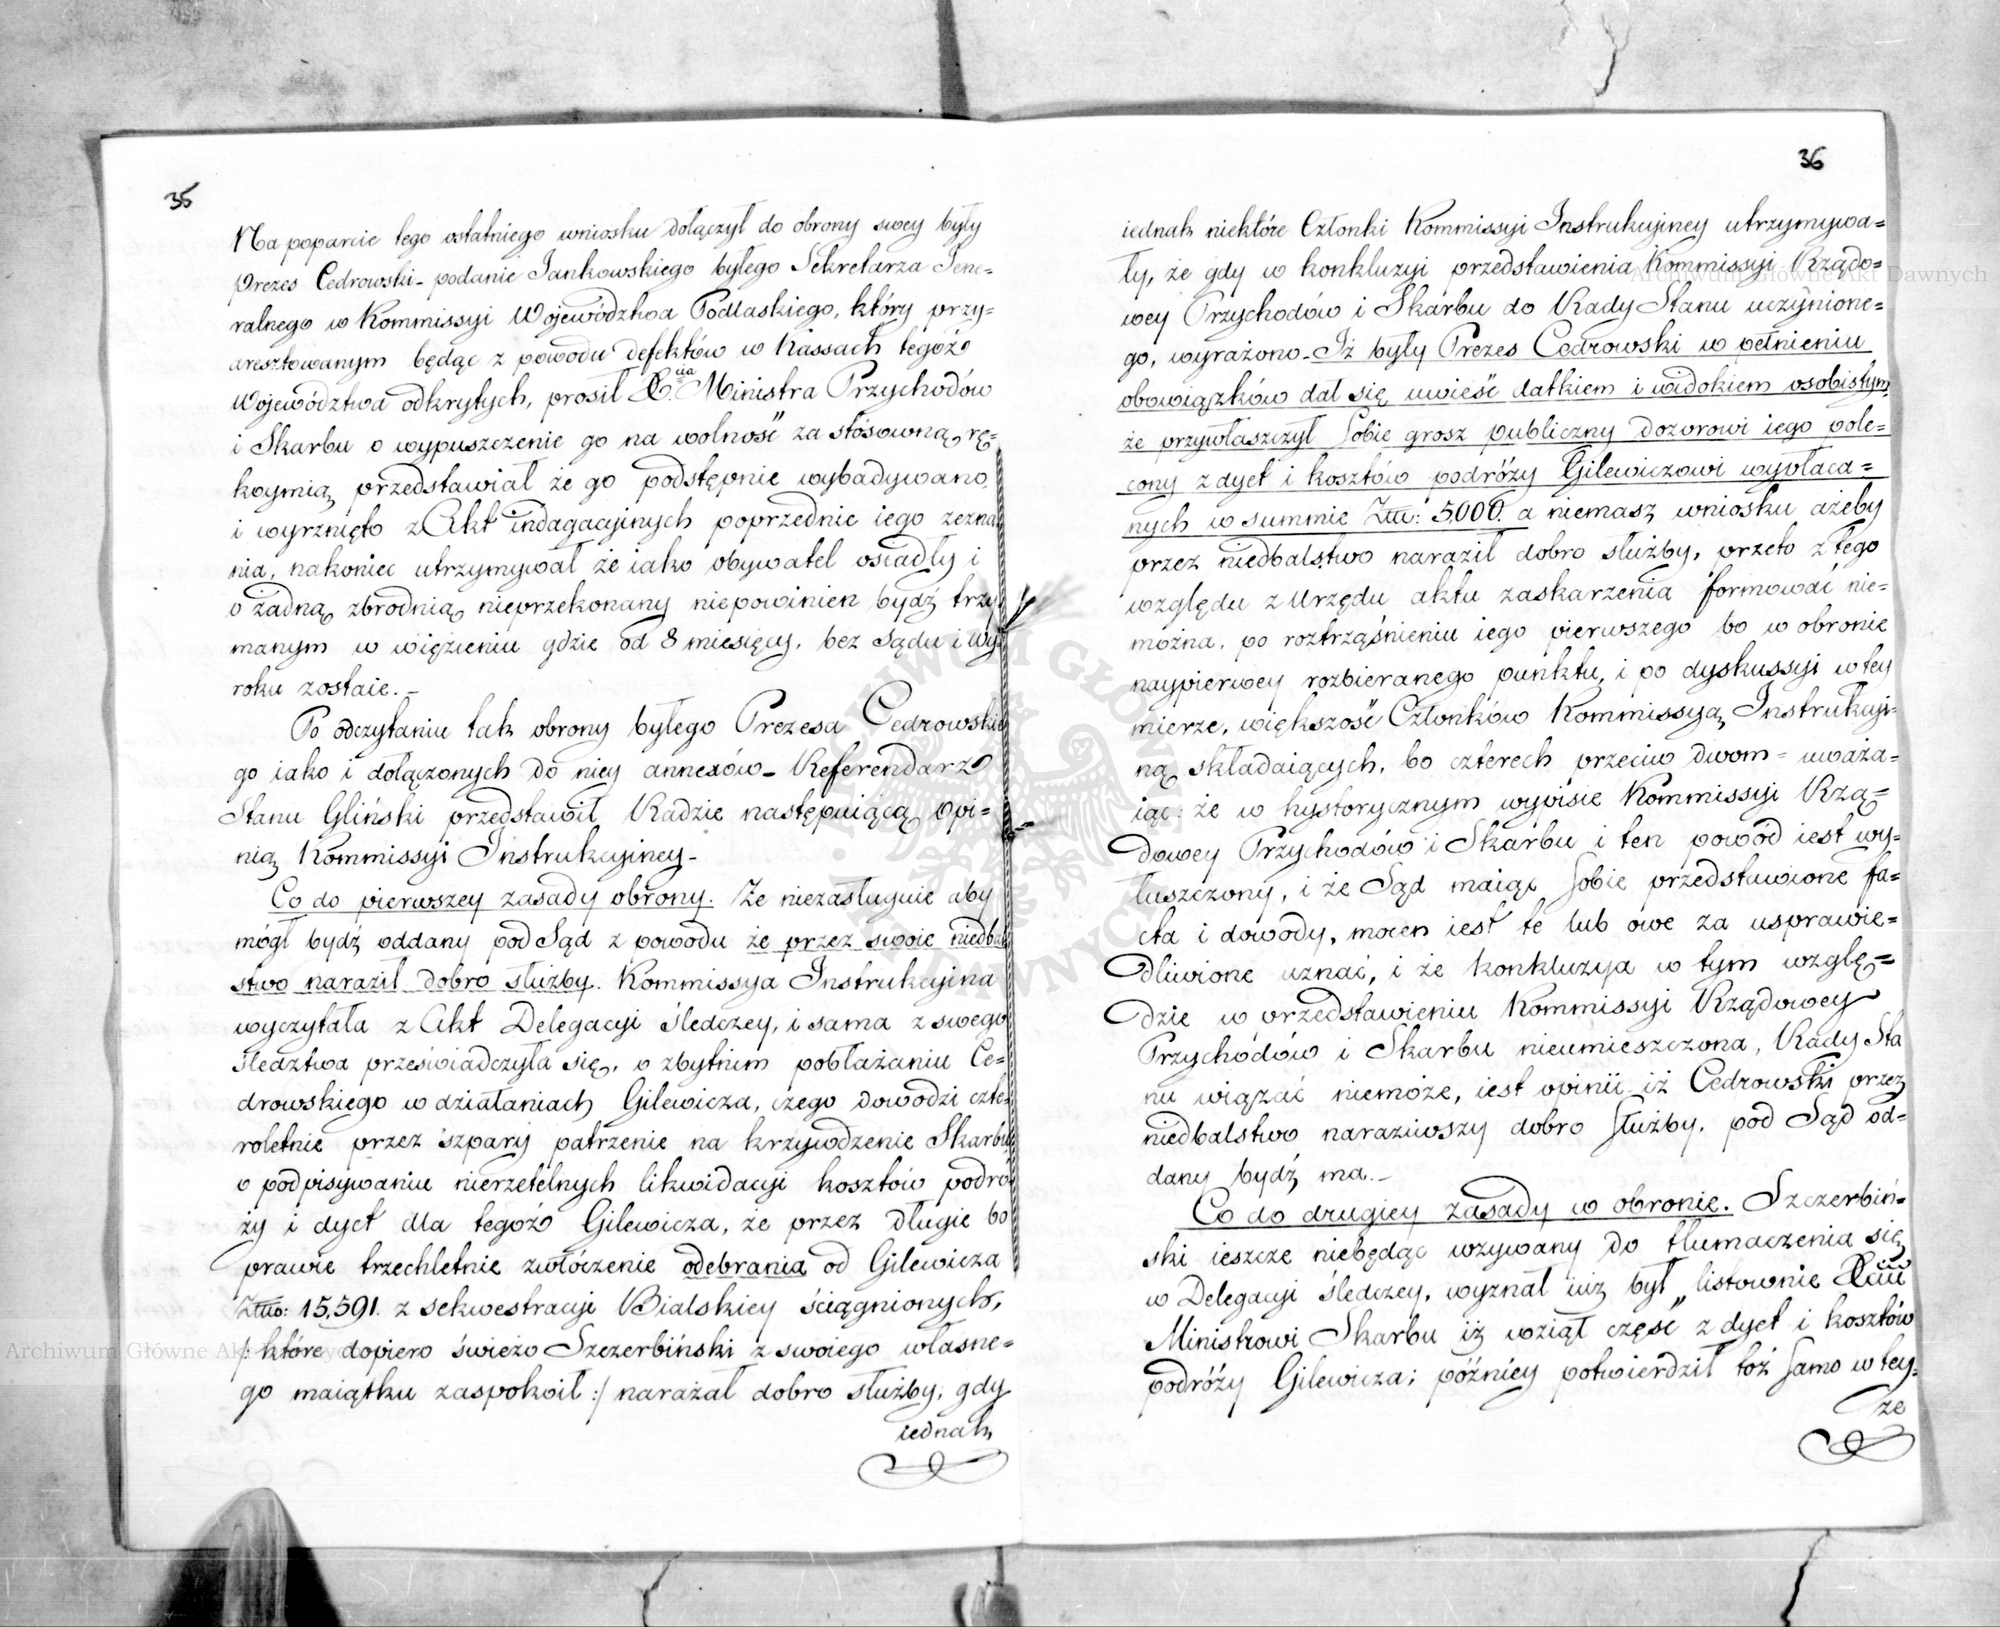 35
Na poparcie tego ostatniego wniosku dołączył do obrony swey były
Prezes Cedrowski - podanie Jankowskiego byłego Sekretarza Jene=
ralnego w Kommissyi Województwa Podlaskiego, który przy=
aresztowanym będąc z powodu defektów w Kassach tegóż
Województwa odkrytych, prosił Ministra Przychodów
i Skarbu o wypuszczenie go na wolność za stósowną rę=
koymią, przedstawiał że go podstępnie wybadywano,
i wyrznięto z Akt indagacyjnych poprzednie iego zezna
nia, nakoniec utrzymywał że iako obywatel osiadły i
o żadną zbrodnią nieprzekonany niepowinien bydź trzy
manym w więzieniu gdzie od 8 miesięcy, bez Sądu i wy
roku zostaie. -
Po odczytaniu tak obrony byłego Prezesa Cedrowskie
go iako i dołączonych do niey annexów - Referendarz
Stanu Gliński przedstawił Radzie następuiącą opi=
nią Kommissyi Instrukcyiney -
Co do pierwszey zasady obrony. Że niezasługuie aby
mógł bydź oddany pod Sąd z powodu że przez swoie niedbal
stwo naraził dobro służby. Kommissya Instrukcyina
wyczytała z Akt Delegacyi śledczey, i sama z swego
śledztwa przeświadczyła się, o zbytnim pobłażaniu Ce=
drowskiego w działaniach Gilewicza, czego dowodzi czte=
roletnie przez szpary patrzenie na krzywdzenie Skarbu
o podpisywaniu nierzetelnych likwidacyi kosztów podró
ży i dyet dla tegóż Gilewicza, że przez długie bo
prawie trzechletnie zwłóczenie odebrania od Gilewicza
Złto: 15,591. z sekwestracyi Bialskiey ściągnionych,
/: które dopiero świeżo Szczerbiński z swoiego własne=
go maiątku zaspokoił :/ narażał dobro służby; gdy
iednak
36
iednak niektóre Członki Kommissyi Instrukcyiney utrzymywa=
ły, że gdy w konkluzyi przedstawienia Kommissyi Rządo=
wey Przychodów i Skarbu do Rady Stanu uczynione=
go, wyrażono - Iż były Prezes Cedrowski w pełnieniu
obowiązków dał się uwieść datkiem i widokiem osobistym,
że przywłaszczył sobie grosz publiczny dozorowi iego pole=
cony z dyet i kosztów podróży Gilewiczowi wypłaca=
nych w summie Złto: 5,000. a niemasz wniosku ażeby
przez niedbalstwo naraził dobro służby, przeto z tego
względu z Urzędu aktu zaskarzenia formować nie=
można, po roztrząśnieniu iego pierwszego bo w obronie
naypierwey rozbieranego punktu, i po dyskussyi w tey
mierze, większość Członków Kommissyą Instrukcyi=
ną składaiących, bo czterech przeciw dwom = uważa=
iąc: że w hystorycznym wypisie Kommissyi Rzą=
dowey Przychodów i Skarbu i ten powód iest wy=
łuszczony, i że Sąd maiąc sobie przedstawione fa=
cta i dowody, mocen iest te lub owe za usprawie=
dliwione uznać, i że konkluzya w tym wzglę=
dzie w przedstawieniu Kommissyi Rządowey
Przychodów i Skarbu nieumieszczona, Rady Sta
nu wiązać niemoże, iest opinii iż Cedrowski przez
niedbalstwo naraziwszy dobro służby, pod Sąd od=
dany bydź ma. -
Co do drugiey zasady w obronie. Szczerbiń=
ski ieszcze niebędąc wzywany do tłumaczenia się
w Delegacyi śledczey, wyznał iuż był „ listownie
Ministrowi Skarbu iż wziął część z dyet i kosztów
podróży Gilewicza; późniey potwierdził toż samo w tey=
że
Archiwum Główne Akt Dawnych
Archiwum Główne Akt Dawnych
ARCHIWUM GŁÓWNE AKT DAWNYCH